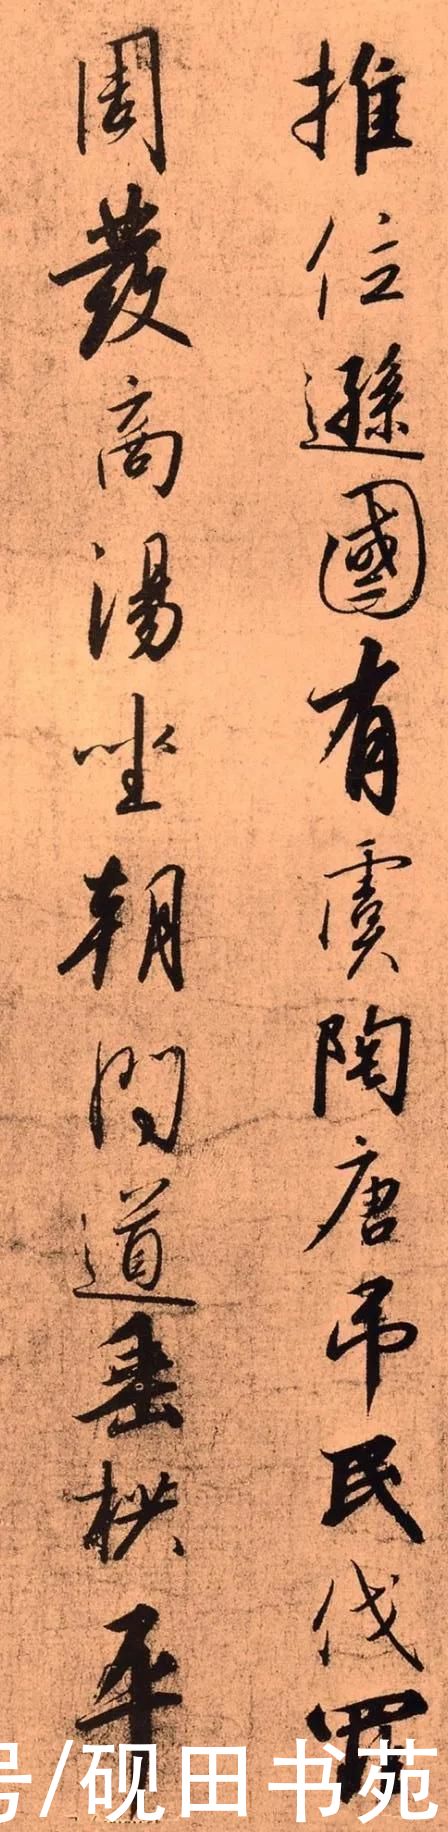 推位遜國有虞陶唐吊民伐罪
周發商湯坐朝問道垂栱平
号/砚田书苑